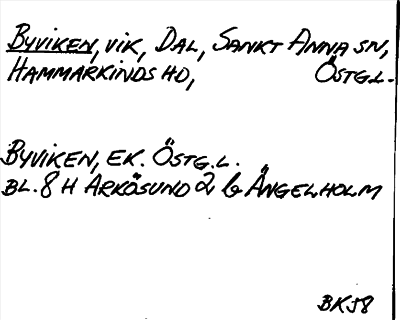 Byviken, vik, Dal, Sankt Anna sn,
Hammarkinds hd, Östg.L.
Byviken, ek. Östg.L.
bl. 8 H Arkösund 2 b Ängelholm
BKJ8